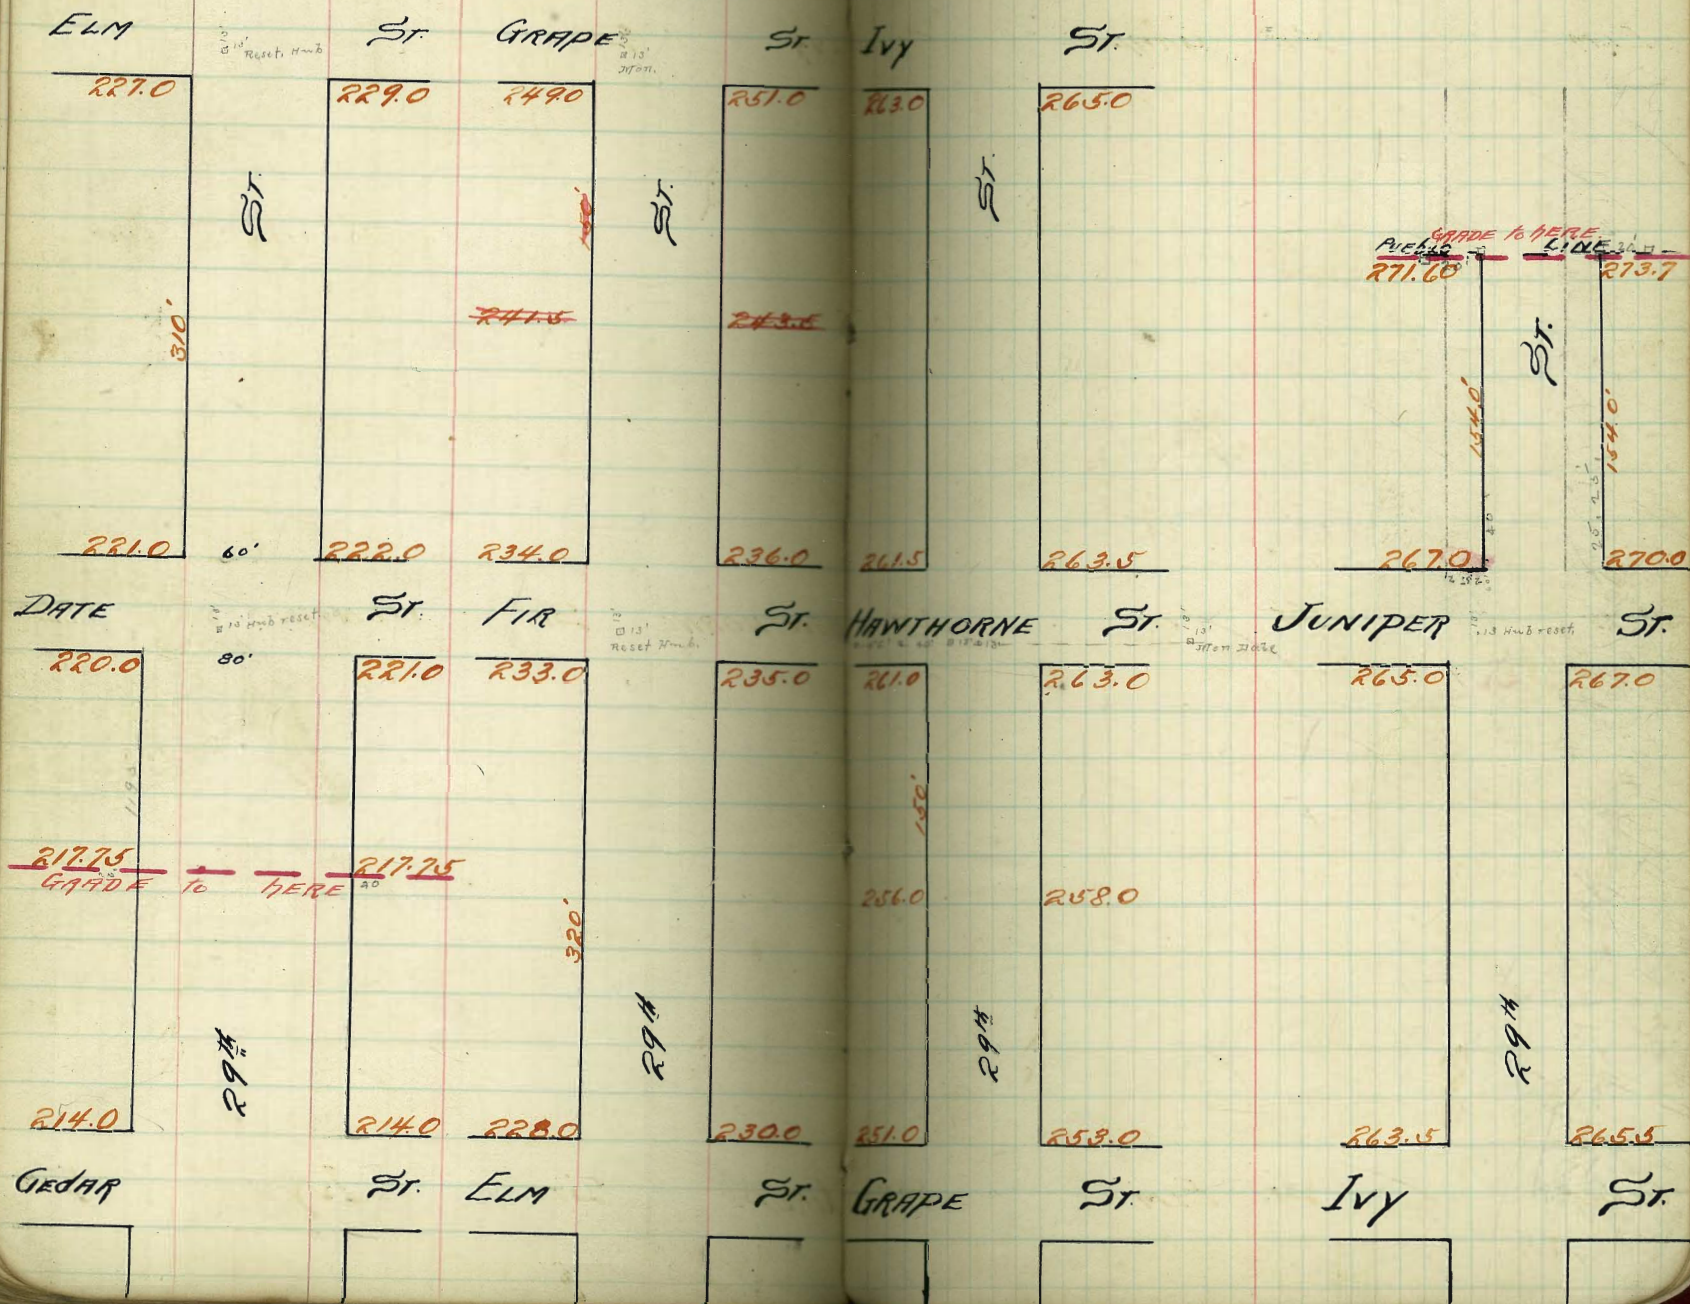 ELM St. GRAPE St. Ivy St.
13' 13' Reset. Hub
13' Mon.
227.0 229.0 249.0 251.0 263.0 265.0
St. St. St.
150'
GRADE to here
PUEBLO LINE
271.60 273.7
310' 241.5 243.5 St.
154.0' 154.0'
221.0 60' 222.0 234.0 236.0 261.5 263.5 267.0 270.0
DATE St. FIR St. HAWTHORNE St. JUNIPER St.
13' Hub reset. 13' Reset Hub. 13' Mon .13 Hub reset.
220.0 80' 221.0 233.0 235.0 261.0 263.0 265.0 267.0
150'
217.75 217.75
GRADE to here 20
256.0 258.0
320'
29th 29th 29th 29th
214.0 214.0 228.0 230.0 251.0 253.0 263.5 265.5
CEDAR St. ELM St. GRAPE St. Ivy St.